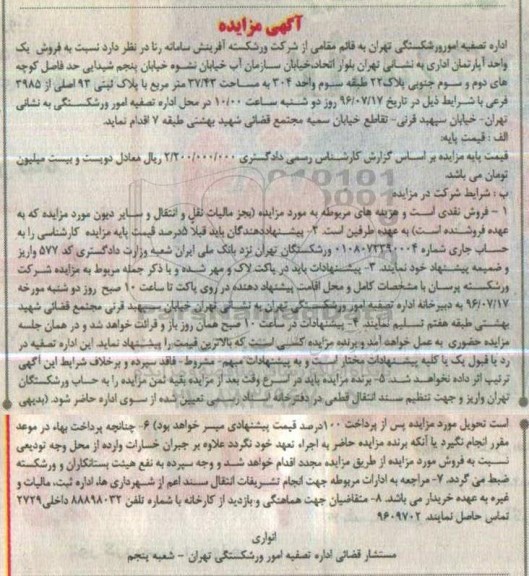 آگهی مزایده
اداره تصفیه امورورشکستگی تهران به قائم مقامی از شرکت ورشکسته آفرینش سامانه رنا در نظر دارد نسبت به فروش یک
واحد آپارتمان اداری به نشانی تهران بلوار اتحاد،خیابان سازمان آب خیابان نشوه خیابان پنجم شیدایی حد فاصل کوچه
های دوم و سوم جنوبی پلاک۲۲ طبقه سوم واحد ۳۰۴ به مساحت ۳۷/۴۳ متر مربع با پلاک ثبتی ۹۳ اصلی از ۳۹۸۵
فرعی با شرایط ذیل در تاریخ ۹۶/۰۷/۱۷ روز دو شنبه ساعت ۱۰/۰۰ در محل اداره تصفیه امور ورشکستگی به نشانی
تهران- خیابان سپهبد قرنی- تقاطع خیابان سمیه مجتمع قضائی شهید بهشتی طبقه ۷ اقدام نماید.
الف : قیمت پایه:
قیمت پایه مزایده بر اساس گزارش کارشناس رسمی دادگستری ۲/۲۰۰/۰۰۰/۰۰۰ ریال معادل دویست و بیست میلیون
تومان می باشد.
ب : شرایط شرکت در مزایده
۱ - فروش نقدی است و هزینه های مربوطه به مورد مزایده (بجز مالیات نقل و انتقال و سایر دیون مورد مزایده که به
عهده فروشنده است) به عهده طرفین است. ۲- پیشنهاددهندگان باید قبلا ۵درصد قیمت پایه مزایده کارشناسی را به
حساب جاری شماره ۰۱۰۸۰۷۳۳۹۰۰۰۴ ورشکستگان تهران نزد بانک ملی ایران شعبه وزارت دادگستری کد ۵۷۷ واریز
و ضمیمه پیشنهاد خود نمایند. ۳- پیشنهادات باید در پاکت لاک و مهر شده و با ذکر جمله مربوط به مزایده شرکت
ورشکسته پرسان با مشخصات کامل و محل اقامت پیشنهاد دهنده در روی پاکت تا ساعت ۱۰ صبح روز دو شنبه مورخه
۹۶/۰۷/۱۷ به دبیرخانه اداره تصفیه امور ورشکستگی تهران به نشانی تهران خیابان سپهبد قرنی مجتمع قضائی شهید
بهشتی طبقه هفتم تسلیم نمایند. ۴- پیشنهادات در ساعت ۱۰ صبح همان روز باز و قرائت خواهد شد و در همان جلسه
مزایده حضوری به عمل خواهد آمد و برنده مزایده کسی است که بالاترین قیمت را پیشنهاد نماید. این اداره تصفیه در
رد یا قبول یک یا کلیه پیشنهادات مختار است و به پیشنهادات مبهم- مشروط- فاقد سپرده و برخلاف شرایط این آگهی
ترتیب اثر داده نخواهد شد. ۵- برنده مزایده باید در اسرع وقت بعد از مزایده بقیه ثمن مزایده را به حساب ورشکستگان
تهران واریز و جهت تنظیم سند انتقال قطعی در دفترخانه اسناد رسمی تعیین شده از سوی اداره حاضر شود. (بدیهی
است تحویل مورد مزایده پس از پرداخت ۱۰۰درصد قیمت پیشنهادی میسر خواهد بود) ۶- چنانچه پرداخت بهاء در موعد
مقرر انجام نگیرد یا آنکه برنده مزایده حاضر به اجراء تعهد خود نگردد علاوه بر جبران خسارات وارده از محل وجه تودیعی
نسبت به فروش مورد مزایده از طریق مزایده مجدد اقدام خواهد شد و وجه سپرده به نفع هیئت بستانکاران و ورشکسته
ضبط می گردد. ۷- مراجعه به ادارات مربوطه جهت انجام تشریفات انتقال سند اعم از شهرداری ها، اداره ثبت، مالیات و
غیره به عهده خریدار می باشد. ۸- متقاضیان جهت هماهنگی و بازدید از کارخانه با شماره تلفن ۸۸۸۹۸۰۳۲ داخلی ۲۷۲۹
تماس حاصل نمایند. ۹۶۰۹۷۰۲
انواری
مستشار قضائی اداره تصفیه امور ورشکستگی تهران - شعبه پنجم